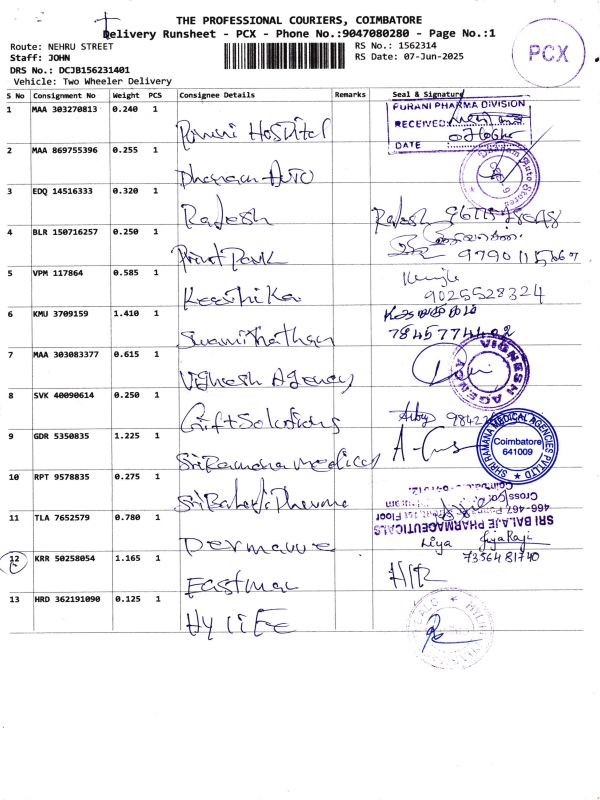 THE PROFESSIONAL COURIERS, COIMBATORE
Delivery Runsheet - PCX - Phone No.:9047080280 - Page No.:1
Route: NEHRU STREET
RS No.: 1562314
Staff: JOHN
RS Date: 07-Jun-2025
DRS No.: DCJB156231401
Vehicle: Two Wheeler Delivery
PCX
S No Consignment No Weight PCS Consignee Details Remarks Seal & Signature
1 MAA 303270813 0.240 1 Purani Hospital
PURANI PHARMA DIVISION
RECEIVED
DATE
2 MAA 869755396 0.255 1 Dhanam Auto
Dhanam Auto Stores
3 EDQ 14516333 0.320 1 Rajesh Rajesh
4 BLR 150716257 0.250 1 Print Park
5 VPM 117864 0.585 1 Keerthika
9025528324
6 KMU 3709159 1.410 1 Swaminathan
7845774402
7 MAA 303083377 0.615 1 Vighesh Agency
VIGNESH AGENCY
8 SVK 40090614 0.250 1 Gift Solutions
9 GDR 5350835 1.225 1 Sri Ramana Medical
SHRI RAMANA MEDICAL AGENCIES PVT LTD
Coimbatore
641009
10 RPT 9578835 0.275 1 Sri Balaji Pharma
SRI BALAJE PHARMACEUTICALS
11 TLA 7652579 0.780 1 Dermavue
Liya Jiyaraji
7356481740
12 KRR 50258054 1.165 1 Eastmac
13 HRD 362191090 0.125 1 Hy life